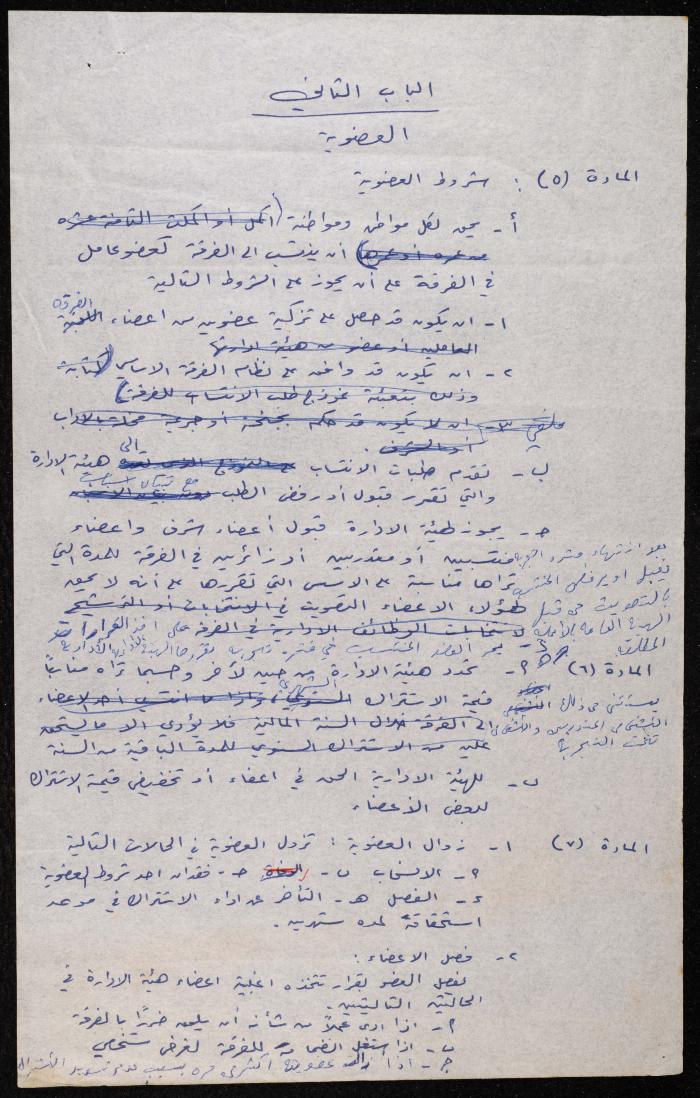 الباب الثاني
العضوية
المادة (٥) : شروط العضوية
أ- يحق لكل مواطن ومواطنة (أكمل أو أكملت الثامنة عشره
من عمره أو عمرها) أن ينتسب الى الفرقة كعضو عامل
في الفرقة على أن يحوز على الشروط التالية
١- ان يكون قد حصل على تزكية عضوين من اعضاء اللجنة الفرقة
العاملين أو عضو من هيئة ادارتها
٢- ان يكون قد وافق على نظام الفرقة الاساسي (كتابة
وذلك بتعبئة نموذج طلب الانتساب للفرقة)
ملغي ٣- ان لا يكون قد حكم بجنحة أو جريمة مخلة بالاداب
أو الشرف .
ب- تقدم طلبات الانتساب على النموذج الذي تعده الى هيئة الادارة
والتي تقرر قبول أو رفض الطلب
ج- يجوز لهيئة الادارة قبول أعضاء شرف واعضاء
منتسبين أو متدربين أو زائرين في الفرقة للمدة التي
تراها مناسبة على الاسس التي تقررها على أنه لا يحق
لهؤلاء الاعضاء التصويت في الانتخابات أو الترشيح
لانتخابات الوظائف الادارية في الفرقة
المادة (٦) أ- تحدد هيئة الادارة من حين لآخر وحسبما تراه مناسباً
قيمة الاشتراك السنوي ، واذا ما انتسب أحد الاعضاء
الى الفرقة خلال السنة المالية فلا يؤدي الا ما يستحق
عليه من الاشتراك السنوي للمدة الباقية من السنة
ب- للهيئة الادارية الحق في اعفاء أو تخفيض قيمة الاشتراك
لبعض الأعضاء
المادة (٧) ١- زوال العضوية : تزول العضوية في الحالات التالية
أ- الانسحاب ب- الوفاة ج- فقدان احد شروط العضوية
د- الفصل هـ- التأخر عن اداء الاشتراك في موعد
استحقاقه لمدة شهرين .
٢- فصل الاعضاء :
يفصل العضو بقرار تتخذه اغلبية اعضاء هيئة الادارة في
الحالتين التاليتين .
أ- اذا أتى عملاً من شأنه أن يلحق ضررًا بالفرقة
ب- اذا استغل انضمامه للفرقة لغرض شخصي
ج- اذا عضويته أكثر من مره بسبب عدم تسديد الاشتراك